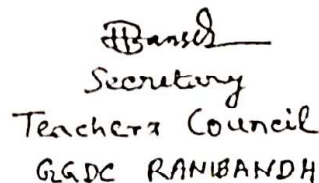 Secretary
Teachers Council
GGDC RANIBANDH